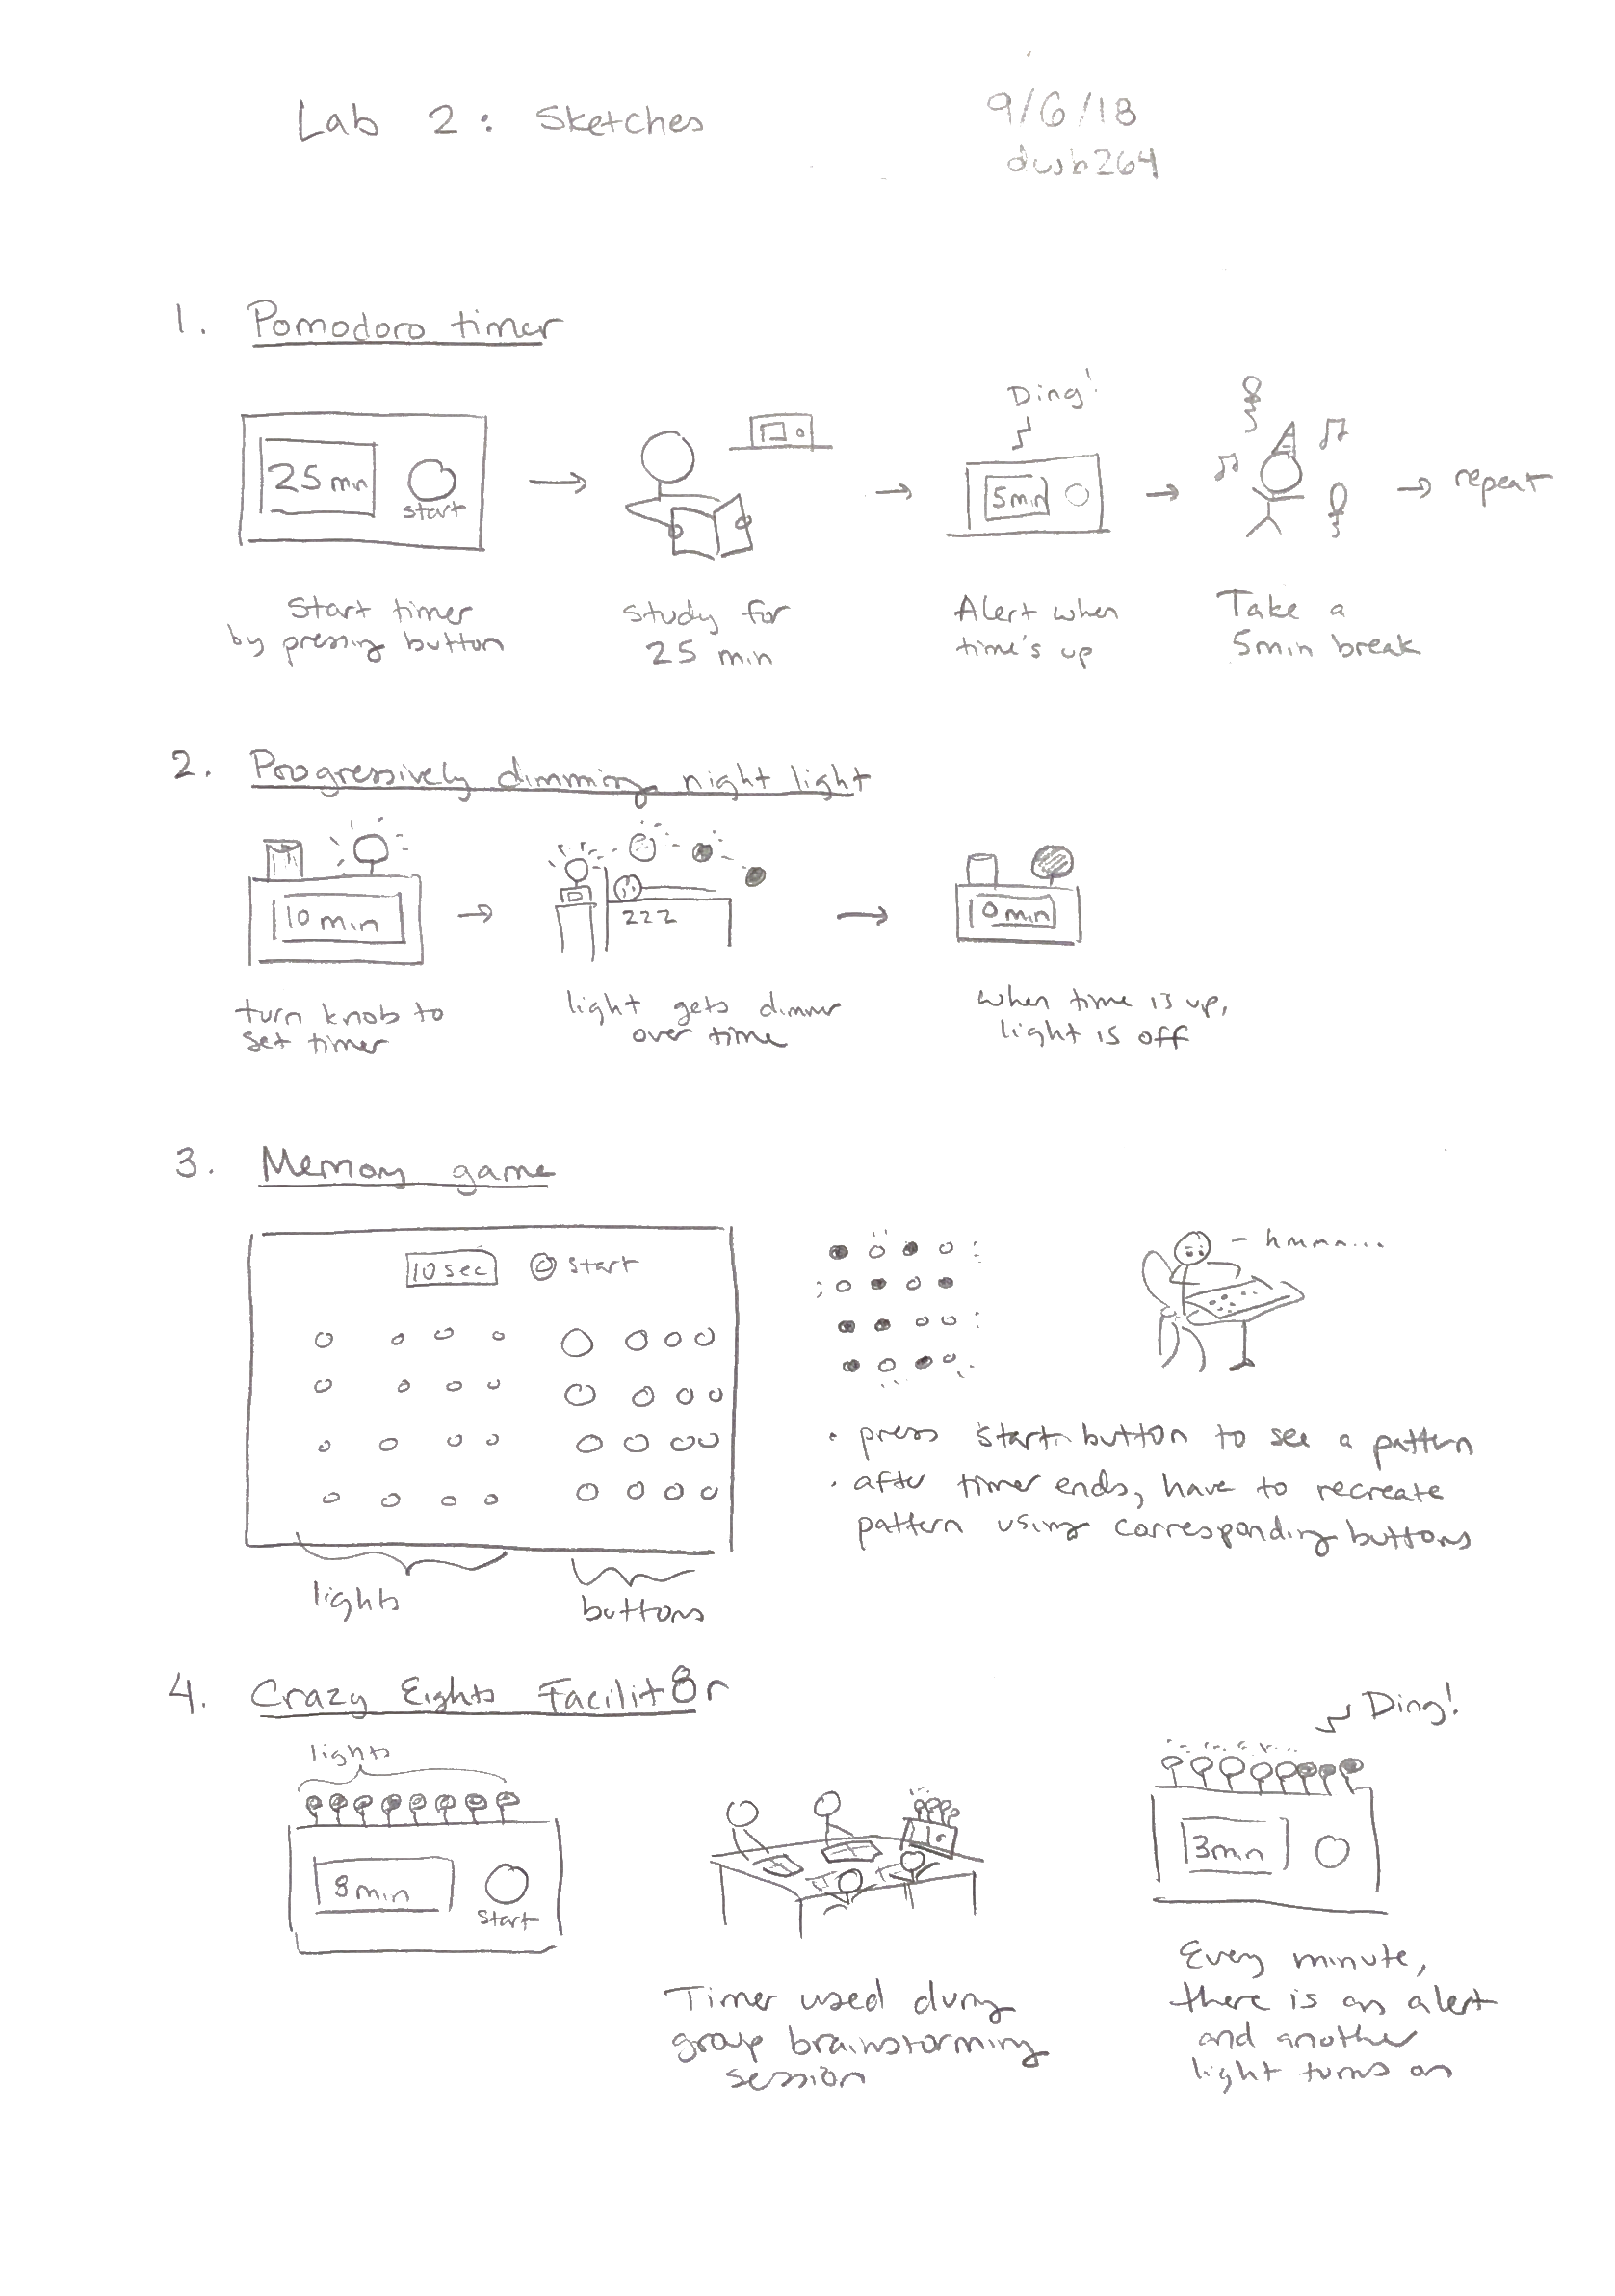 Lab 2: Sketches
9/6/18
dwb264
1. Pomodoro timer
25 min
start
Ding!
5min
repeat
Start timer
by pressing button
study for
25 min
Alert when
time's up
Take a
5min break
2. Progressively dimming night light
10 min
zzz
0 min
turn knob to
set timer
light gets dimmer
over time
when time is up,
light is off
3. Memory game
10 sec
start
- hmmn...
• press start button to see a pattern
• after timer ends, have to recreate
pattern using corresponding buttons
lights
buttons
4. Crazy Eights Facilit8r
lights
8 min
start
Ding!
3min
Timer used during
group brainstorming
session
Every minute,
there is an alert
and another
light turns on